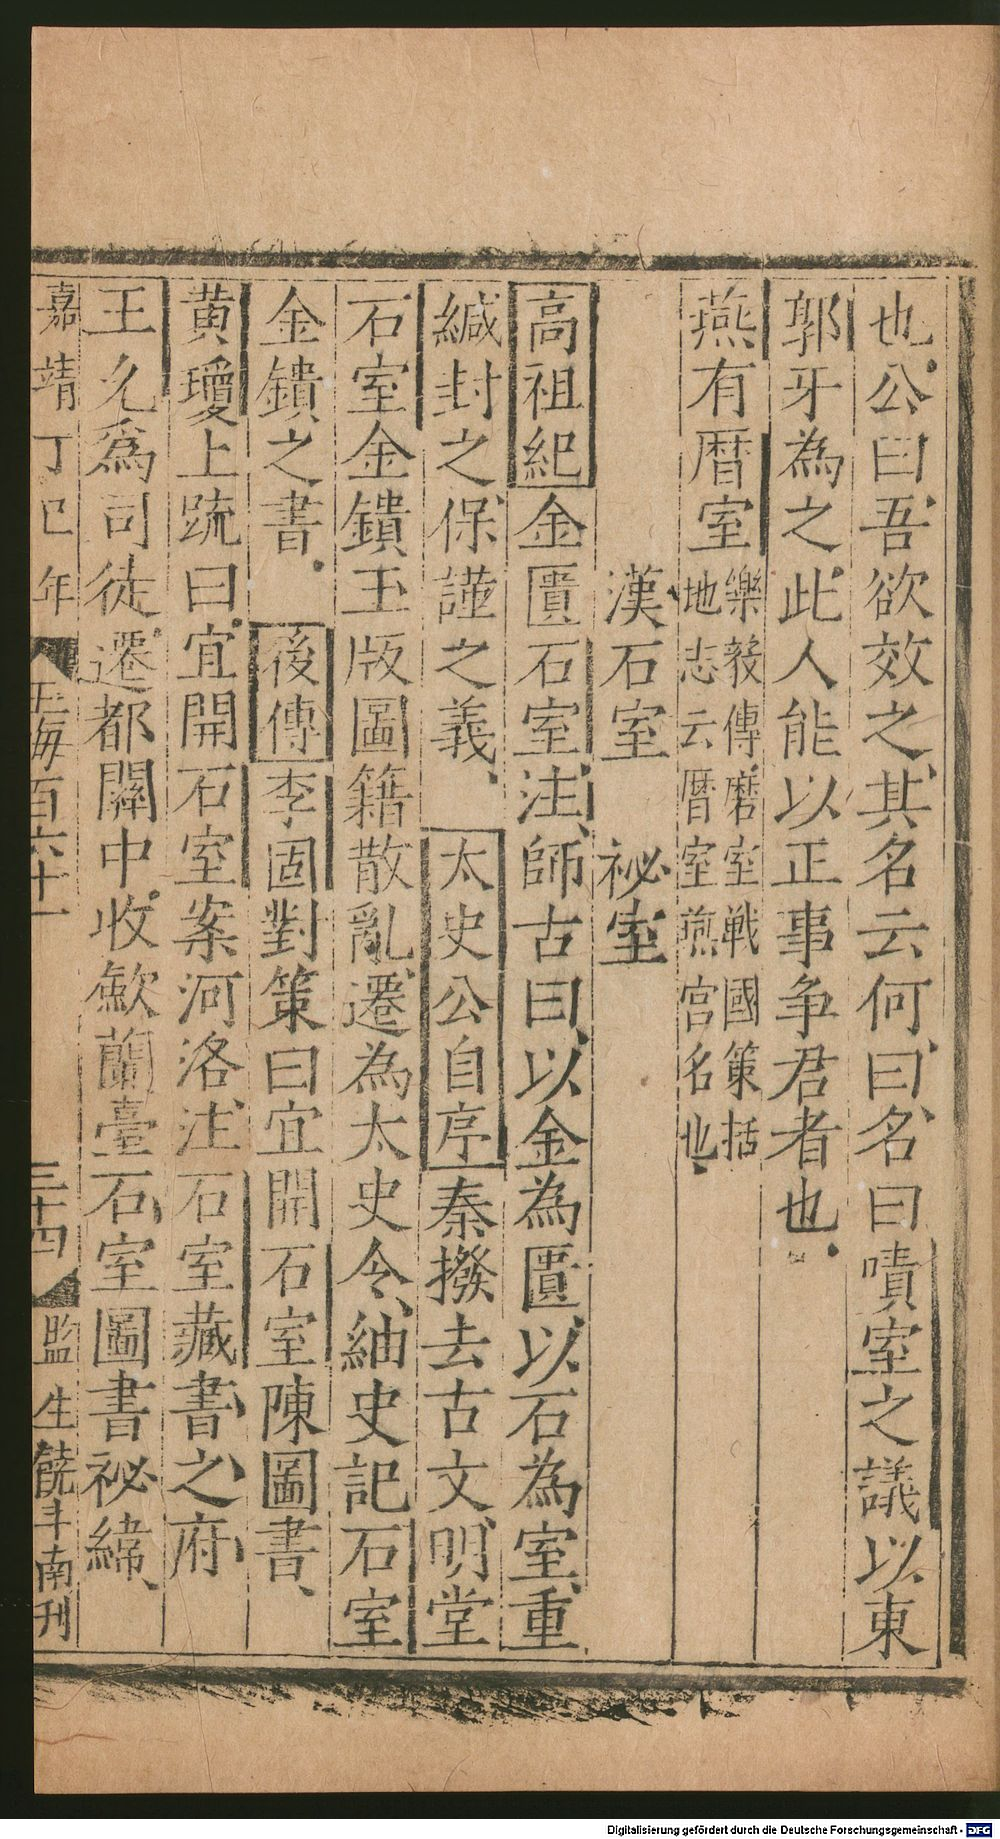 也公曰吾欲效之其名云何曰名曰嘖室之議以東
郭牙為之此人能以正事争君者也
燕有暦室樂毅傳磨室戦國策括
地志云暦室燕宮名也
漢石室 祕室
高祖紀金匱石室注師古曰以金為匱以石為室重
緘封之保謹之義 太史公自序秦撥去古文明堂
石室金鐀玉版圖籍散亂遷為太史令紬史記石室
金鐀之書 後傳李固對策曰宜開石室陳圖書
黃瓊上䟽曰宜開石室案河洛注石室藏書之府
王允爲司徒遷都關中收歛蘭臺石室圖書祕緯
嘉靖丁巳年 玉海百六十一 三十四 監生饒斗南刊
Digitalisierung gefördert durch die Deutsche Forschungsgemeinschaft - DFG